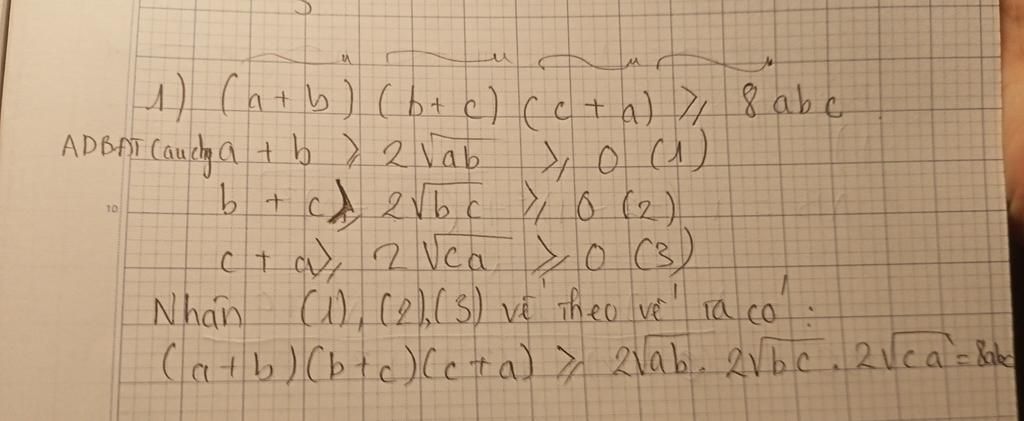 1) (a + b) (b + c) (c + a) ≥ 8abc
ADBĐT Cauchy a + b ≥ 2√ab ≥ 0 (1)
b + c ≥ 2√bc ≥ 0 (2)
10
c + a ≥ 2√ca ≥ 0 (3)
Nhân (1), (2), (3) vế theo vế ta có :
(a+b)(b+c)(c+a) ≥ 2√ab . 2√bc . 2√ca = 8abc